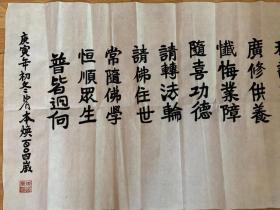 廣修供養
懺悔業障
隨喜功德
請轉法輪
請佛住世
常隨佛學
恒順眾生
普皆迴向
庚寅年初冬 本煥百四歲